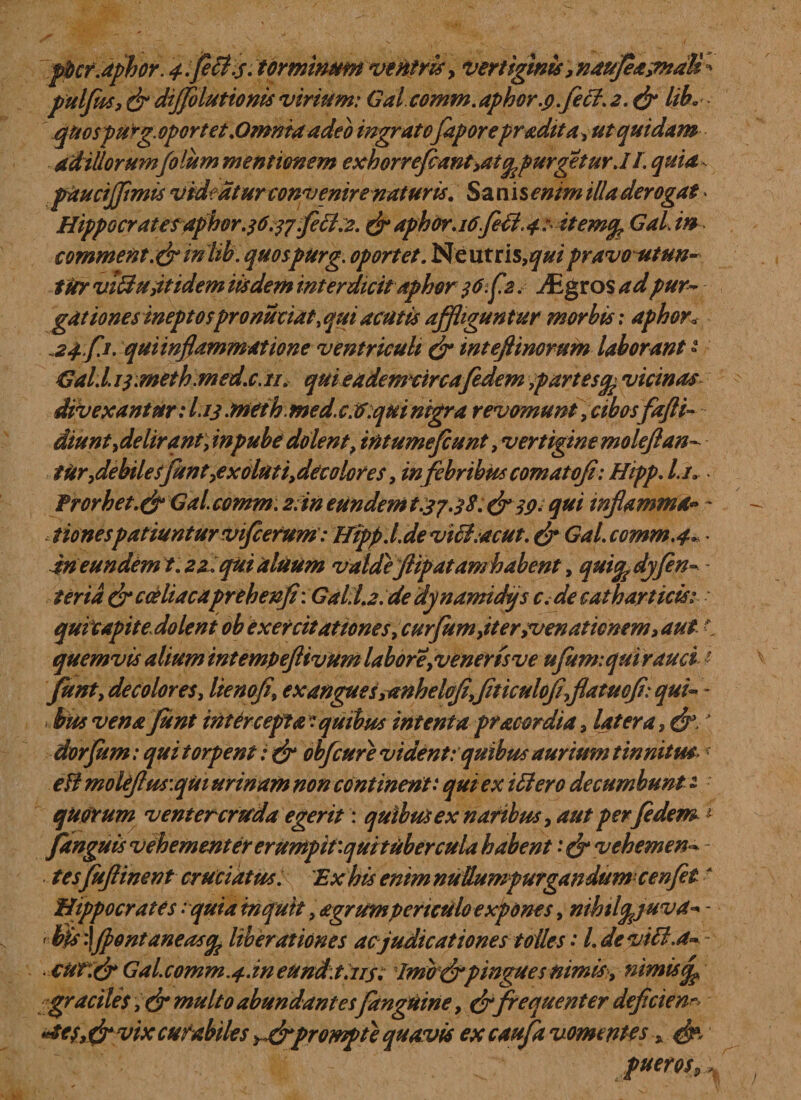 pocr.aphor. 4. ſect.5. torminum ventris, vertiginis, nauſeæ, mali
pulſus, & diſſolutionis virium: Gal comm. aphor.9. ſect. 2. & lib.
quos purg. oportet. Omnia adeò ingrato ſapore prædita, ut quidam
ad illorum ſolùm mentionem exhorreſcant, atq; purgētur. II. quia
pauciſſimis videātur convenire naturis. Sanis enim illa derogat
Hippocrates aphor.36.37 ſect.2. & aphor.16 ſect.4: itemq; Gal. in
comment. & in lib. quos purg. oportet. Neutris, qui pravo utun-
tur victu, itidem iisdem interdicit aphor 36. ſ.2. Ægros ad pur-
gationes ineptos pronũciat, qui acutis affliguntur morbis: aphor.
24. ſ.1. qui inflammatione ventriculi & inteſtinorum laborant:
Gal. l. 13. meth. med. c. 11. qui eadem circa ſedem, partesq; vicinas
divexantur: l.13. meth. med. c.6: qui nigra revomunt, cibos faſti-
diunt, delirant, in pube dolent, intumeſcunt, vertigine moleſtan-
tur, debiles ſunt, exoluti, decolores, in febribus comatoſi: Hipp. l.1.
Prorhet. & Gal. comm. 2. in eundem t.37.38. & 39. qui inflamma-
tiones patiuntur viſcerum: Hipp. l. de vict. acut. & Gal. comm. 4.
in eundem t. 22. qui aluum valdè ſtipatam habent, quiq; dyſen-
teriâ & cœliacâ prehenſi: Gal l.2. de dynamidijs c. de catharticis:
qui capite dolent ob exercitationes, curſum, iter, venationem, aut
quemvis alium intempeſtivum laborē, venerisve uſum: qui rauci
ſunt, decolores, lienoſi, exangues, anheloſi, ſiticuloſi, flatuoſi: qui-
bus venæ ſunt interceptæ: quibus intenta præcordia, latera, &
dorſum: qui torpent: & obſcurè vident: quibus aurium tinnitus
eſt moleſtus: qui urinam non continent: qui ex ictero decumbunt:
quorum venter cruda egerit: quibus ex naribus, aut per ſedem
ſanguis vehementer erumpit: qui tubercula habent: & vehemen-
tes ſuſtinent cruciatus. Ex his enim nullum purgandum cenſet
Hippocrates: quia inquit, ægrum periculo expones, nihilq; juva-
bis: ſpontaneasq; liberationes ac judicationes tolles: l. de vict. a-
cut. & Gal. comm. 4. in eund. t. 115. Imò & pingues nimis, nimisq;
graciles, & multo abundantes ſanguine, & frequenter deficien-
tes, & vix curabiles, & promptè quavis ex cauſa vomentes, &
pueros,